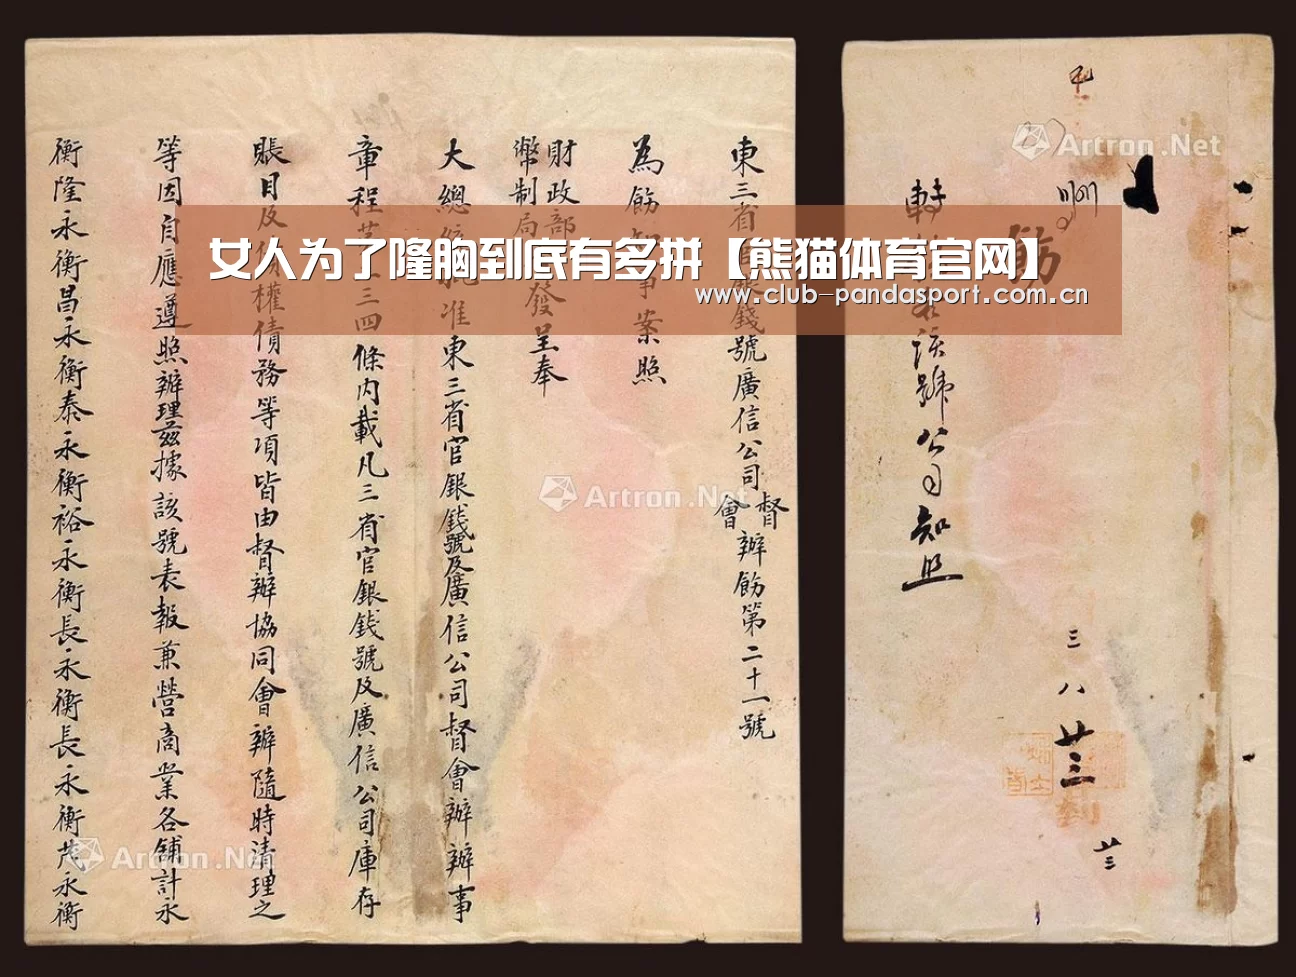 東三省官銀錢號廣信公司督會辦飭第二十一號
為飭知事案照
財政部
幣制局
發呈奉
大總統批准東三省官銀錢號及廣信公司督會辦辦事
章程第三四條內載凡三省官銀錢號及廣信公司庫存
賬目及債權債務等項皆由督辦協同會辦隨時清理之
等因自應遵照辦理茲據該號表報兼營商業各舖計永
衡隆永衡昌永衡泰永衡裕永衡長永衡長永衡茂永衡
女人为了隆胸到底有多拼【熊猫体育官网】
www.club-pandasport.com.cn
飭
該號公司知照
三
八
廿三
到
廿三
Artron.Net
Artron.Net
Artron.Net